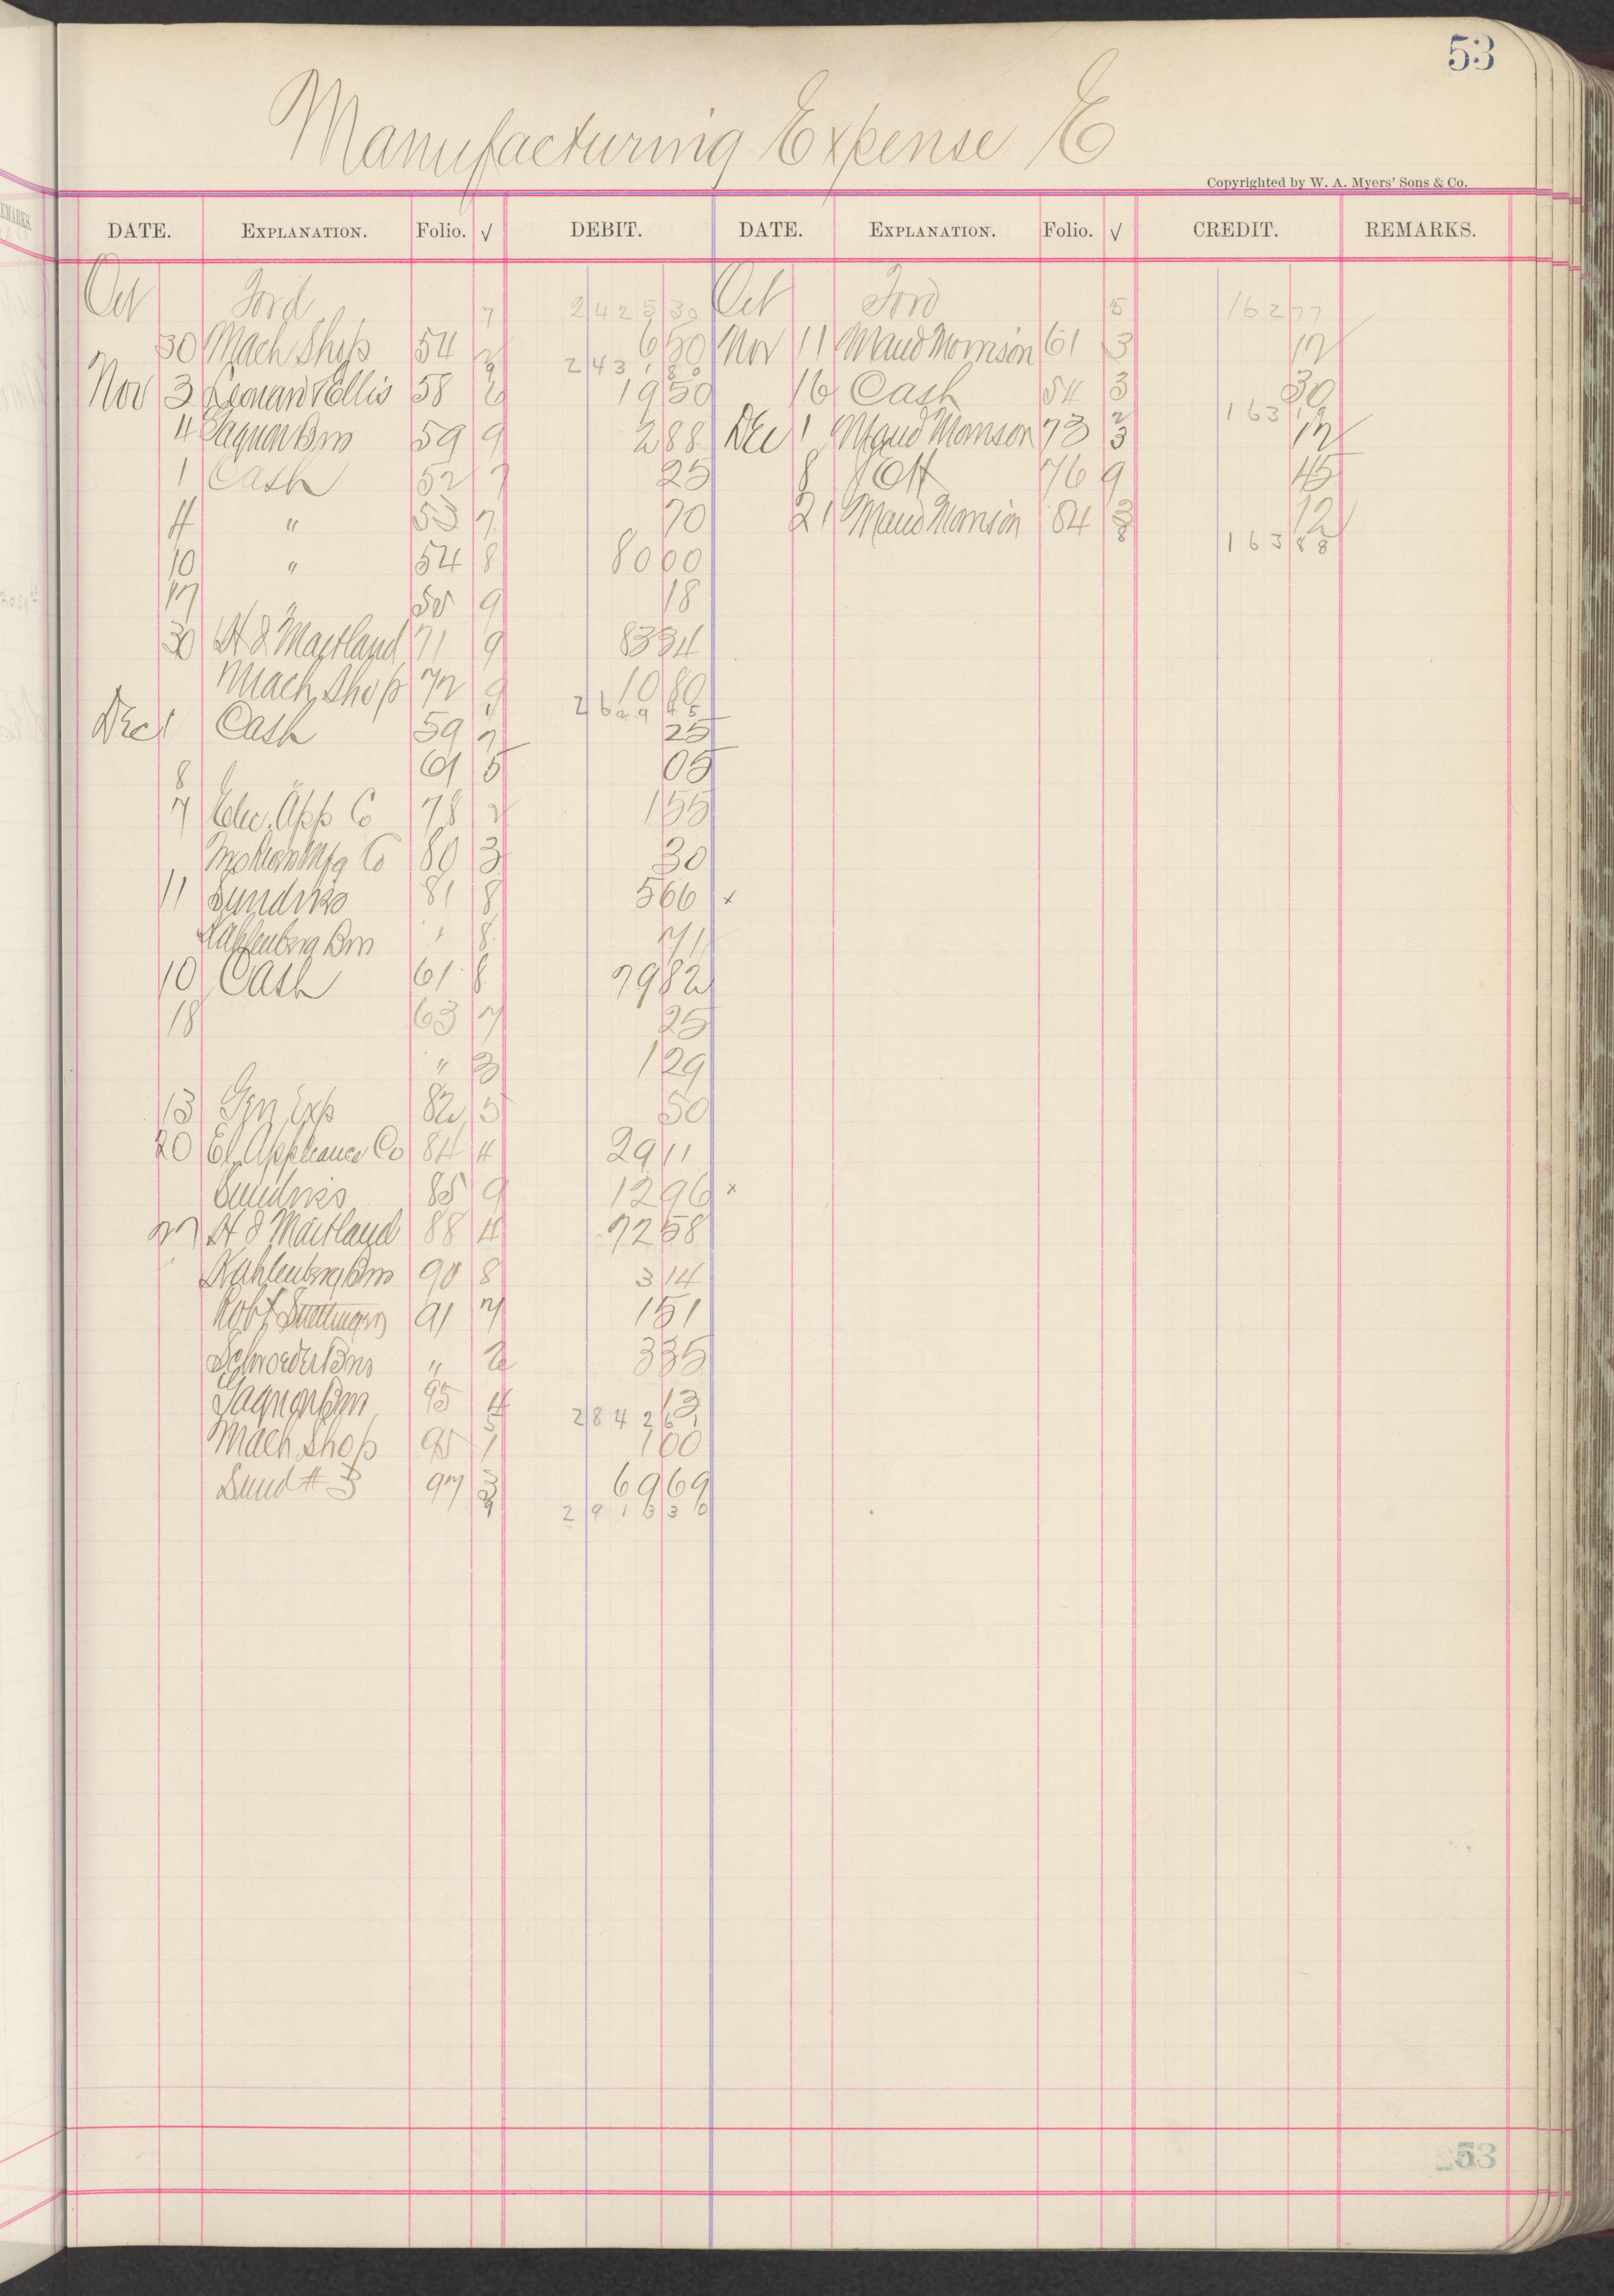 53
Manufacturing Expense E
Copyrighted by W. A. Myers' Sons & Co.
DATE. EXPLANATION. Folio. √ DEBIT. DATE. EXPLANATION. Folio. √ CREDIT. REMARKS.
Oct Ford 7 2425 30 Oct Ford 5 162 77
30 Mach Shop 54 6 50 Nov 11 Maud Morrison 61 3 12
2431 80
Nov 3 Leonard & Ellis 58 6 19 50 16 Cash 54 3 30
163 19
4 Gagnon Bros 59 9 2 88 Dec 1 Maud Morrison 73 3 12
1 Cash 52 7 25 8 76 9 45
4 " 53 7 70 21 Maud Morrison 84 3 12
163 88
10 " 54 8 80 00
17 " 55 9 18
30 H S Maitland 71 9 83 34
Mach Shop 72 9 10 80
2629 45
Dec 1 Cash 59 7 25
8 " 61 5 05
7 Elec. App Co 78 2 1 55
Mfg Co 80 3 30
11 Sundries 81 8 5 66 x
Kahlenberg Bros " 8 71
10 Cash 61 8 79 82
18 63 7 25
" 3 1 29
13 Gen Exp 82 5 50
20 El. Appliance Co 84 4 29 11
Sundries 85 9 12 96 x
27 H S Maitland 88 4 72 58
Kahlenberg Bros 90 8 3 14
Robt 91 7 1 51
Schroeder Bros " 2 3 35
Gagnon Bros 95 4 13
2842 61
Mach Shop 95 1 1 00
Sund # 3 97 3 69 69
9 2913 30
53